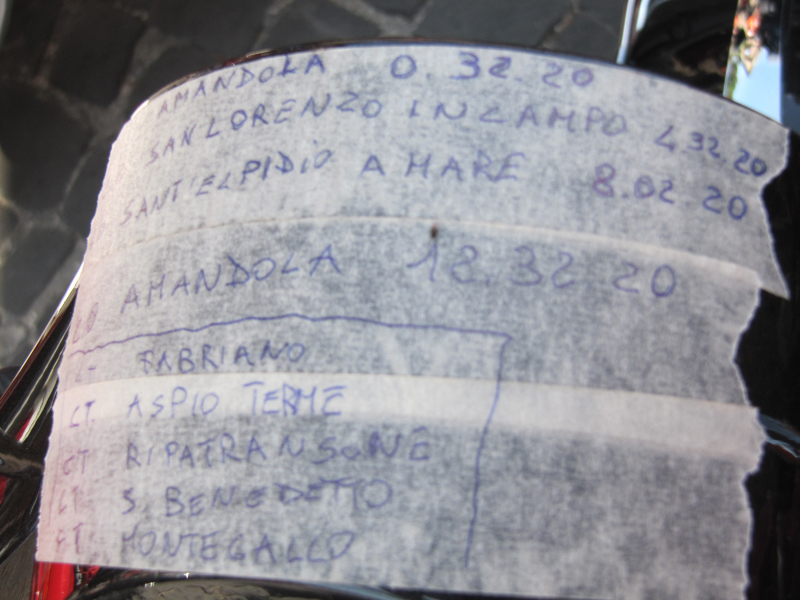 AMANDOLA 0.32.20
SAN LORENZO IN CAMPO 4.32.20
SANT'ELPIDIO A MARE 8.02.20
AMANDOLA 12.32.20
- FABRIANO
CT. ASPIO TERME
CT RIPATRANSONE
CT. S. BENEDETTO
CT. MONTEGALLO